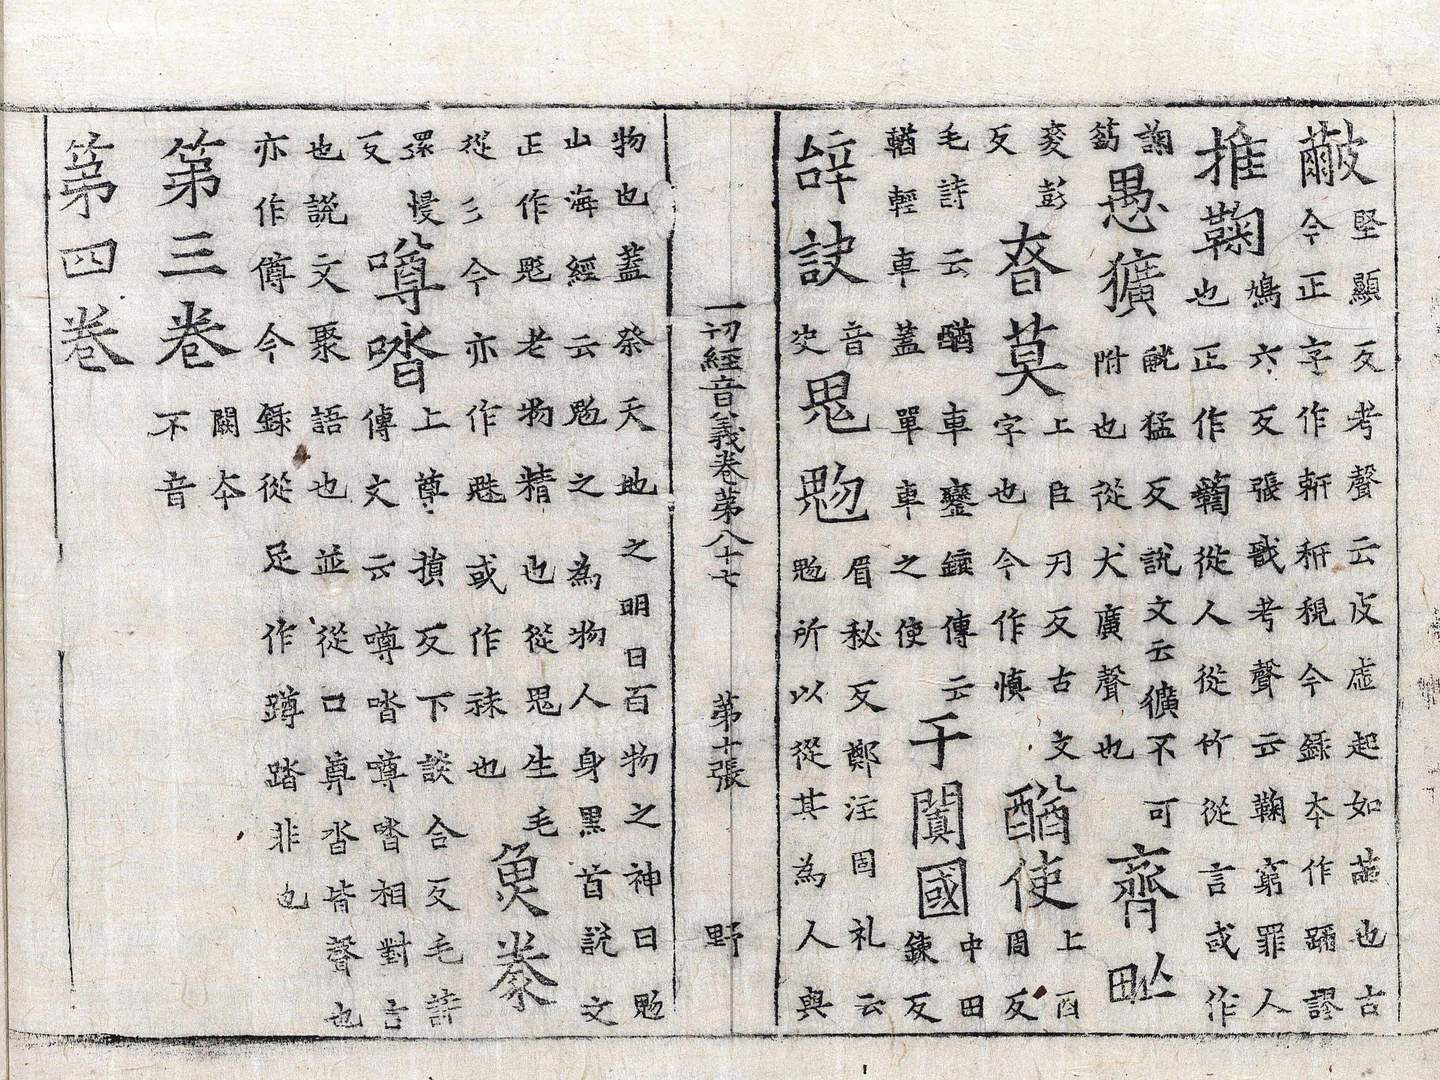 堅顯反考聲云皮虛起如也古
今正字作皯秆今録本作踊謬
推鞠
鳩六反張戩考聲云鞠窮罪人
也正作䉤從人從竹從言或作
諊
愚獷
觥猛反說文云獷不可
附也從犬廣聲也
齊毗
麦彭
反
昚莫
上臣刃反古文
字也今作慎
酋使
上酉
周反
毛詩云輶車鑾鑣傳云
輶輕車蓋單車之使
于闐國
中田
鍊反
辝訣
音
鬼鬽
眉秘反鄭注周礼云
鬽所以從其為人與
一切經音義卷第八十七 第十張 野
物也蓋祭天地之明日百物之神曰鬽
山海經云鬽之為物人身黑首說文
正作鬽老物精也從鬼生毛
從彡今亦作魅或作䰨也
魚豢
環慢
反
噂㗳
上尊損反下談合反毛詩
傳文云噂㗳噂㗳相對言
也說文聚語也並從口尊沓皆聲也
亦作僔今録從足作蹲踏非也
第三卷
闕本
不音
第四卷